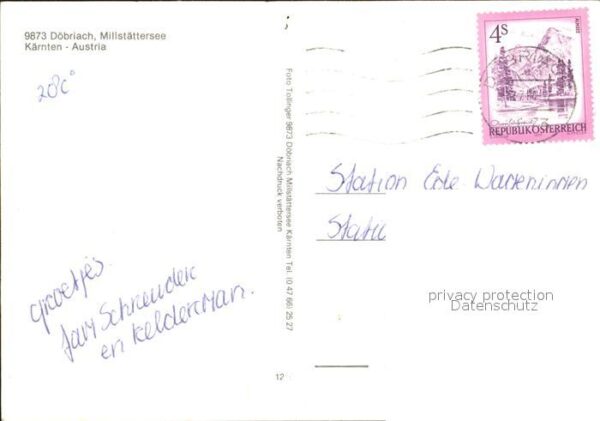 9873 Döbriach, Millstättersee
Kärnten - Austria
28C°
groetjes.
fam Schreuder
en Kelderman.
Foto Tollinger 9873 Döbriach Millstättersee Kärnten Tel. (0 47 66) 25 27
Nachdruck verboten
12
4S
REPUBLIK ÖSTERREICH
Station
privacy protection
Datenschutz